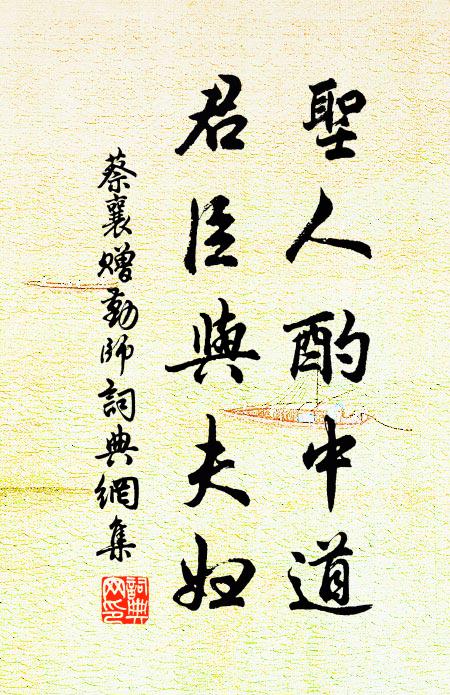 聖人酌中道
君臣與夫婦
蔡襄贈勤師詞典網集
詞典
网印